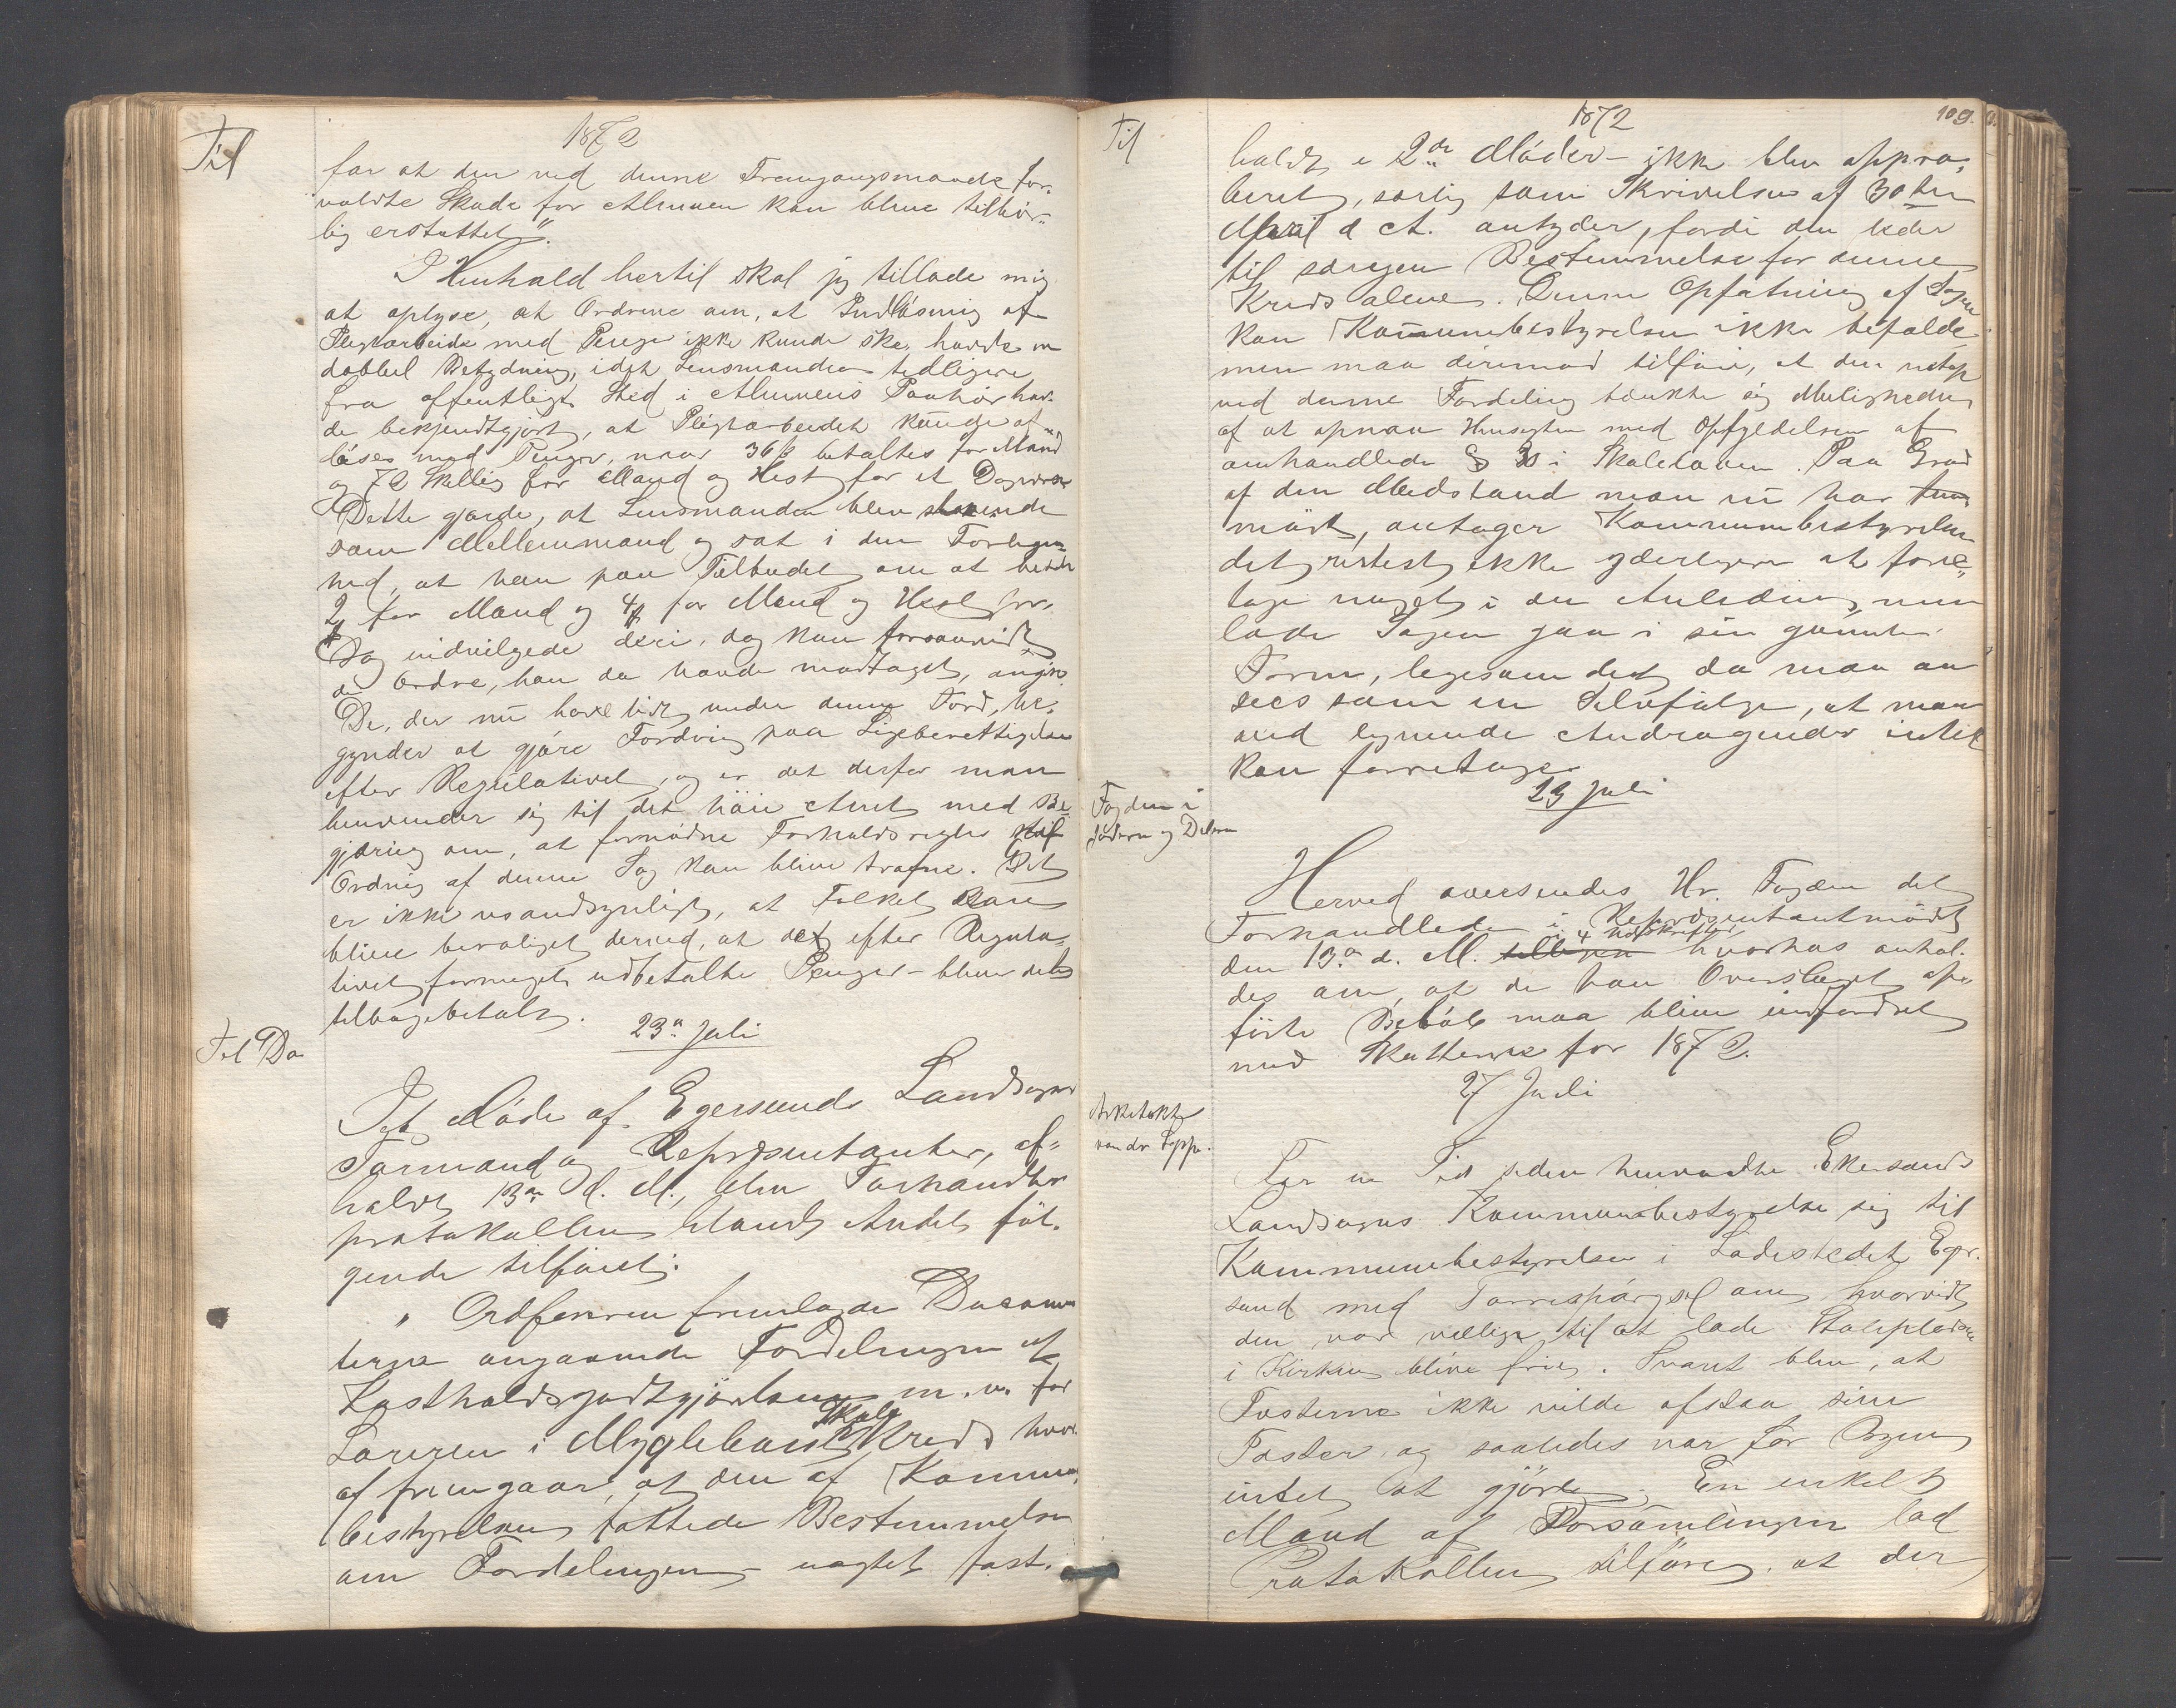 Til
1872
for at den ved denne Fremgangsmaade for-
voldte Skade for Almuen kan blive tilbør-
lig erstattet".
I Henhold hertil skal jeg tillade mig
at oplyse, at Ordrene om, at Indløsning af
Pligtarbeide med Penge ikke kunde ske, havde en
dobbel Betydning, idet Lensmanden tidligere
fra offentligt Sted i Almuens Paahør hav-
de bekjendtgjort, at Pligtarbeidet kunde af-
løses med Penger, naar 36 ß betaltes for Mand
og 72 Skilling for Mand og Hest for et Dagværk
Dette gjorde, at Lensmanden blev staaende
som Mellemmand og sat i den Forlegen-
hed, at han paa Tilbudet om at betale
2 for Mand og 4 for Mand og Hest pr.
Dag indvilgede deri, dog kun forsaavidt
de Ordre, han da havde modtaget, angik
De, der nu have lidt under denne Ford, be-
gynder at gjøre Fordring paa Ligeberettigelse
efter Regulativet, og er det derfor man
henvender sig til det høie Amt med Be-
gjæring om, at fornødne Forholdsregler til
Ordning af denne Sag kan blive trafne. Det
er ikke usandsynligt, at Folket kan
blive beroliget derved, at det efter Regula-
tivet formeget udbetalte Penger - bliver dets
tilbagebetalt.
23de Juli
Til Do
I et Møde af Egersunds Landsogns
Formænd og Repræsentanter, af-
holdt 13de d. M., blev Forhandlings
protokollen blandt Andet føl-
gende tilføiet:
" Ordføreren fremlagde Docomen
terne angaaende Fordelingen af
Kostholdsgodtgjørelsen m. v. for
Læreren i Myglebust Skole Kreds hvor-
af fremgaar, at den af Kommune
bestyrelsen fattede Bestemmelse
om Fordelingen - uagtet fast-
Til
1872
109.
holdt i 2de Møder - ikke blev appro-
beret, særlig som Skrivelse af 30te
April d A. antyder, fordi den leder
til særegen Bestemmelse for denne
Kreds alene. Denne Opfatning af Sagen
kan Kommunebestyrelsen ikke befølde
men maa derimod tilføie, at den netop
ved denne Fordeling tænkte sig Muligheden
af at opnaa Hensigten med Opfyldelsen af
omhandlede § 30 i Skoleloven. Paa Grund
af den Modstand man nu har
mødt, antager Kommunebestyrelsen
det rettest ikke yderligere at fore-
tage noget i den Anledning, men
lade Sagen gaa i sin gamle
Form, ligesom det da maa an
sees som en Selvfølge, at man
med lignende Andragender intet
kan foretage.
23 Juli
Fogden i
Jæderen og Dalerne
Herved oversendes Hr. Fogden det
Forhandlede i Repræsentantmødet
den 13de d. M. i 4 Udskrifter hvorhos anhol-
des om, at de paa Overslaget op-
førte Beløb maa blive indfordret
med Skatterne for 1872.
27 Juli
Arkitekt
von der Lippe.
For en Tid siden henvendte Ekersunds
Landsogns Kommunebestyrelse sig til
Kommunebestyrelsen i Ladestedet Eger-
sund med Forrespørgsel om, hvorvidt
den var villig til at lade Stolepladsene
i Kirken blive frie. Svaret blev, at
Fæsterne ikke vilde afstaa sine
Fæster og saaledes var for Byen
intet at gjøre. En enkelt
Mand af Forsamlingen lod
Protokollen tilføre, at der